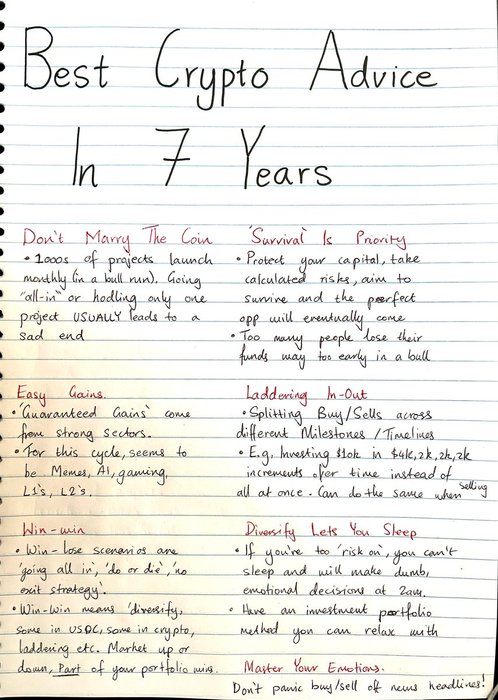 Best Crypto Advice
In 7 Years
Don't Marry The Coin
• 1000s of projects launch
monthly (in a bull run). Going
"all-in" or hodling only one
project USUALLY leads to a
sad end
'Survival' Is Priority
• Protect your capital, take
calculated risks, aim to
survive and the perfect
opp will eventually come
• Too many people lose their
funds way too early in a bull
Easy Gains.
• 'Guaranteed Gains' come
from strong sectors.
• For this cycle, seems to
be Memes, AI, gaming,
L1's, L2's.
Laddering In-Out
• Splitting Buy/Sells across
different Milestones / Timelines
• E.g. Investing $10k in $4k, 2k, 2k, 2k
increments over time instead of
all at once. Can do the same when selling
Win-win
• Win-lose scenarios are
'going all in', 'do or die', 'no
exit strategy'.
• Win-Win means 'diversify,
some in USDC, some in crypto,
laddering etc. Market up or
down, Part of your portfolio wins.
Diversify Lets You Sleep
• If you're too 'risk on', you can't
sleep and will make dumb,
emotional decisions at 2am.
• Have an investment portfolio
method you can relax with
Master Your Emotions.
Don't panic buy/sell off news headlines!